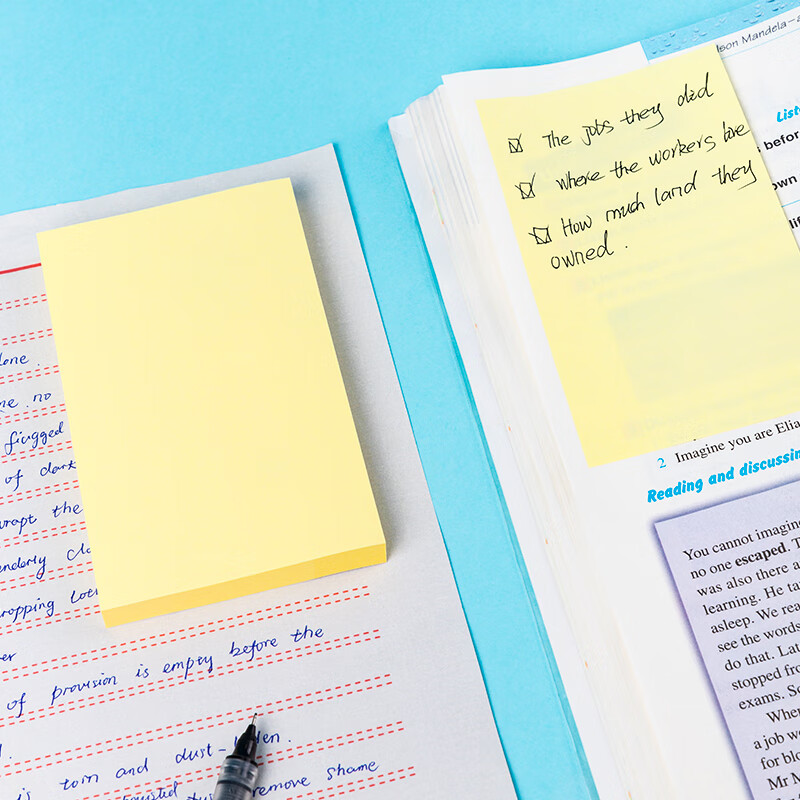 done.
no
fingged
of dark
wrapt the
enderly clo
ropping lote
er
of provision is empty before the
is torn and dust-laden.
remove shame
The jobs they did
where the workers live
How much land they
owned.
lson Mandela – a
List
s before
own
lif
2 Imagine you are Elia
Reading and discussin
You cannot imagin
no one escaped. T
was also there a
learning. He ta
asleep. We rea
see the words
do that. Lat
stopped fro
exams. So
When
a job w
for blo
Mr M